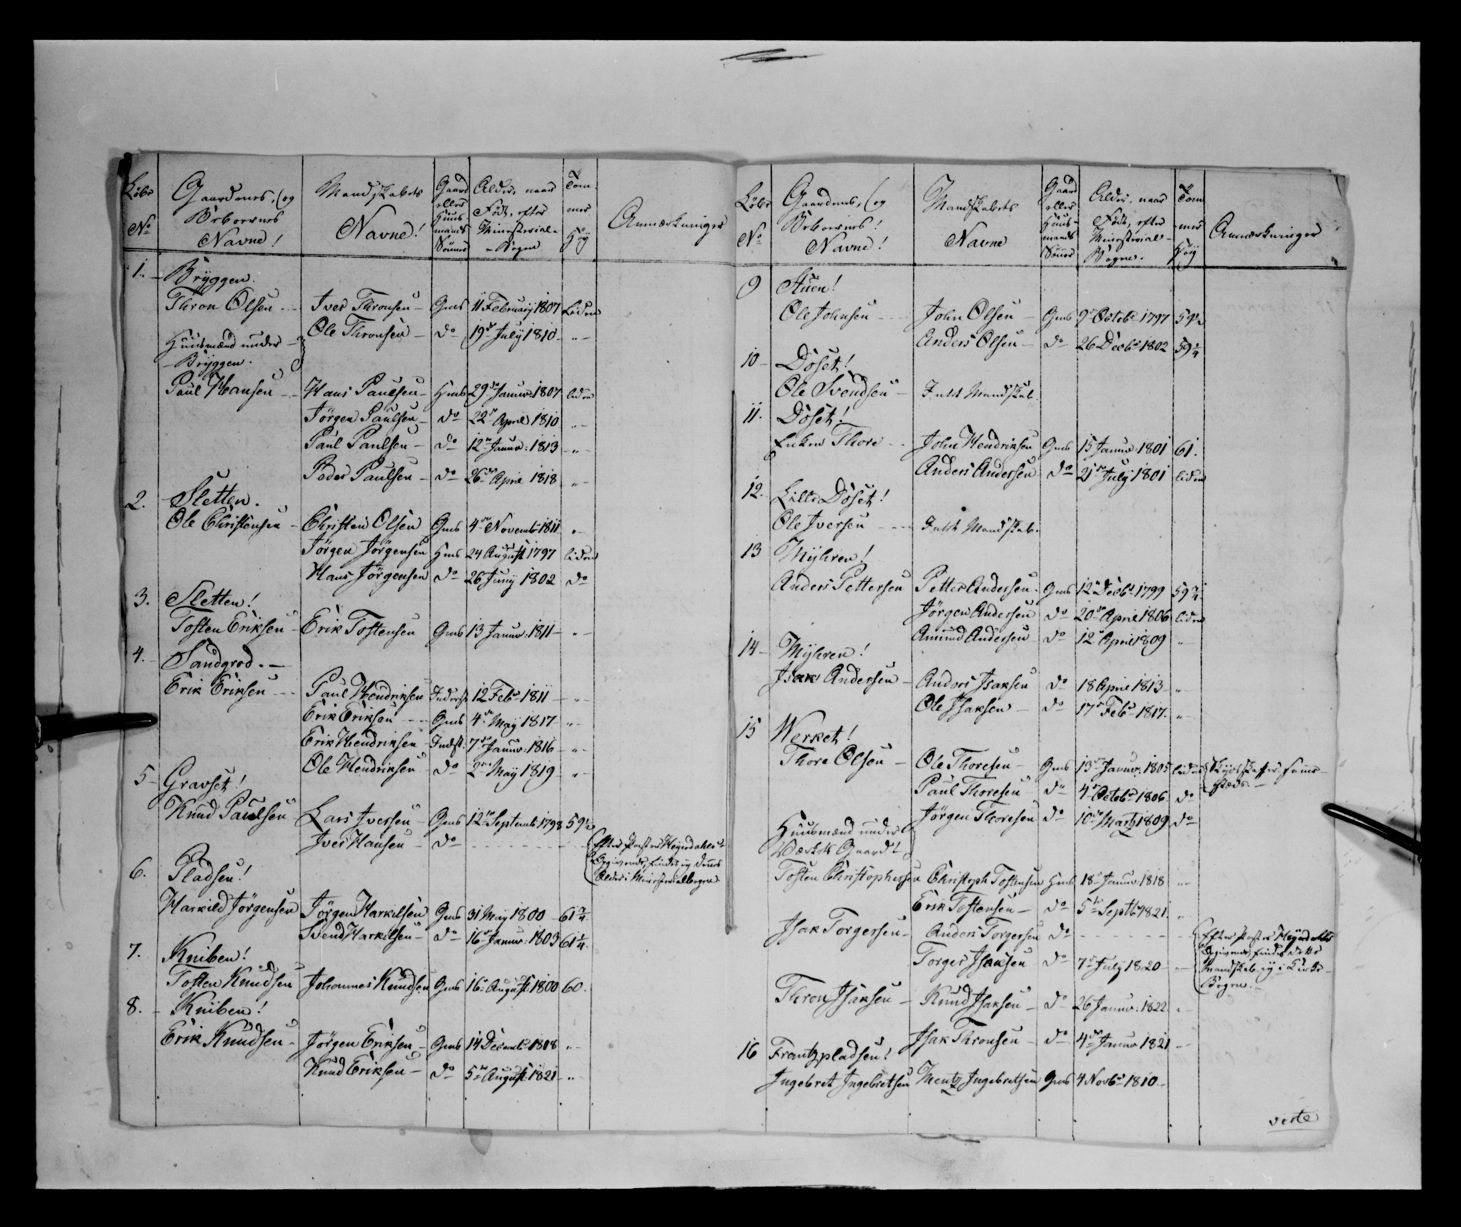 Løbe No
Gaardenes, (og Beboernes Navne!
Mandskabets Navne!
Gaard eller Huusmands Sønner
Alder, naar Født, efter Ministerial-Bogen
Tommer Høy
Anmærkninger
1. Bryggen.
Thron Olsen Iver Thronsen Gms 11 Februarij 1807 liden
Ole Thronsen do 19de Julij 1810 "
Huusmænd under
Bryggen.
Paul Hansen Hans Paulsen Hms 29de Januar 1807 liden
Jörgen Paulsen do 22de April 1810 "
Paul Paulsen do 12te Januar: 1813 "
Peder Paulsen do 26de April 1818 "
2. Sletten.
Ole Christensen Christen Olsen Gms 4de Novemb 1811 "
Jörgen Jörgensen Hms 24 August 1797 liden
Hans Jörgensen do 26 Junij 1802 do
3. Sletten!
Tosten Eriksen Erik Tostensen Gms 13 Januar: 1811 "
4. Sandgrod.
Erik Eriksen Paul Hendriksen Inderst 12 Febr 1811 "
Erik Eriksen Gms 4de May 1817 "
Erik Hendriksen Inderst: 7de Januar: 1816 "
Ole Hendriksen do 2den Maij 1819 "
5 Gravset!
Knud Paulsen Lars Iversen Gms 12te Septemb 1798 59½
Iver Hansen do
Efter Præsten Heyerdahls
Opgivende, findes ey dennes
Alder i Ministerialbogen
6. Pladsen!
Harkild Jörgensen Jörgen Harkilsen Gms 31 Maj 1800 61¾
Svend Harkilsen do 16de Januar: 1803 61¼
7. Kniben!
Tosten Knudsen Johannes Knudsen Gms 16de August 1800 60.
8. Kniben!
Erik Knudsen Jörgen Eriksen Gms 14 Decemb 1818 "
Knud Eriksen do 5te August 1821 "
Løbe No
Gaardenes, (og Beboernes Navne!
Mandskabets Navne
Gaard eller Huusmands Sønner
Alder, naar Født, efter Ministerial-Bogen.
Tommer Høy
Anmærkninger
9 Stuen!
Ole Johnsen John Olsen Gms 9de Octob 1797 59½
Anders Olsen do 26 Decbr 1802 59¼
10 Döset!
Ole Svendsen Intet Mandskab.
11. Döset!
Enken Thore John Hendriksen Gms 15 Januar 1801 61.
Anders Andersen do 21de Julij 1801 liden
12. Lille Döset!
Ole Iversen Intet Mandskab.
13 Myhren!
Anders Pettersen Petter Andersen Gms 12te Decbr 1799 59¾
Jörgen Andersen do 20de April 1806 liden
Amund Andersen do 12te April 1809 "
14 Myhren!
Isak Andersen Anders Isaksen do 18 April 1813 "
Ole Isaksen do 17de Febr 1817 "
15 Werket!
Thore Olsen Ole Thoresen Gms 13de Januar: 1805 liden
Paul Thoresen do 4de Octob 1806 do
Jörgen Thoresen do 10de Marty 1809 do
Huusmænd under
Værkets Gaard!
Tosten Christophersen Christoph Tostensen Hms 18de Januar 1818 "
Erik Tostensen do 5te Septbr 1821 "
Isak Torgersen Anders Torgersen do
Efter Præsten Heyerdahls
Opgivende, findes dette
Mandskab ey i Kirke-
Bogen.
Torger Isaksen do 7de July 1820 "
Thron Isaksen Knud Isaksen do 26 Januar: 1822 "
Isak Thronsen do 4de Januar 1821 "
16 Frantzpladsen!
Ingebret Ingebretsen Mentz Ingebretsen Gms 4 Novbr 1810
verte